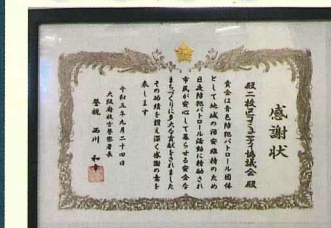 感謝状
殿二校区コミュニティ協議会殿
貴会は青色防犯パトロール団体
として地域の治安維持のため
日夜防犯パトロール活動に精励され
市民が安心して暮らせる安全な
まちづくりに多大な貢献をされました
その功績を讃え深く感謝の意を
表します
令和五年九月二十四日
大阪府枚方警察署長
警視 西川 和幸